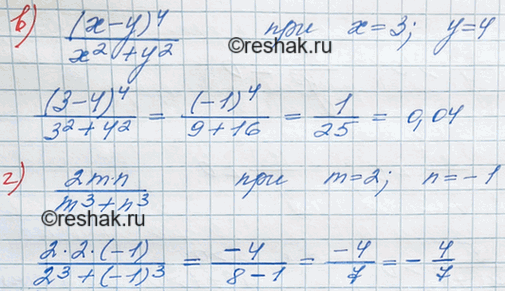 в) (x-y)⁴/(x²+y²) при x=3; y=4
©reshak.ru
(3-4)⁴/(3²+4²) = (-1)⁴/(9+16) = 1/25 = 0,04
г) 2m·n/(m³+n³) при m=2; n=-1
©reshak.ru
2·2·(-1)/(2³+(-1)³) = -4/(8-1) = -4/7 = -4/7